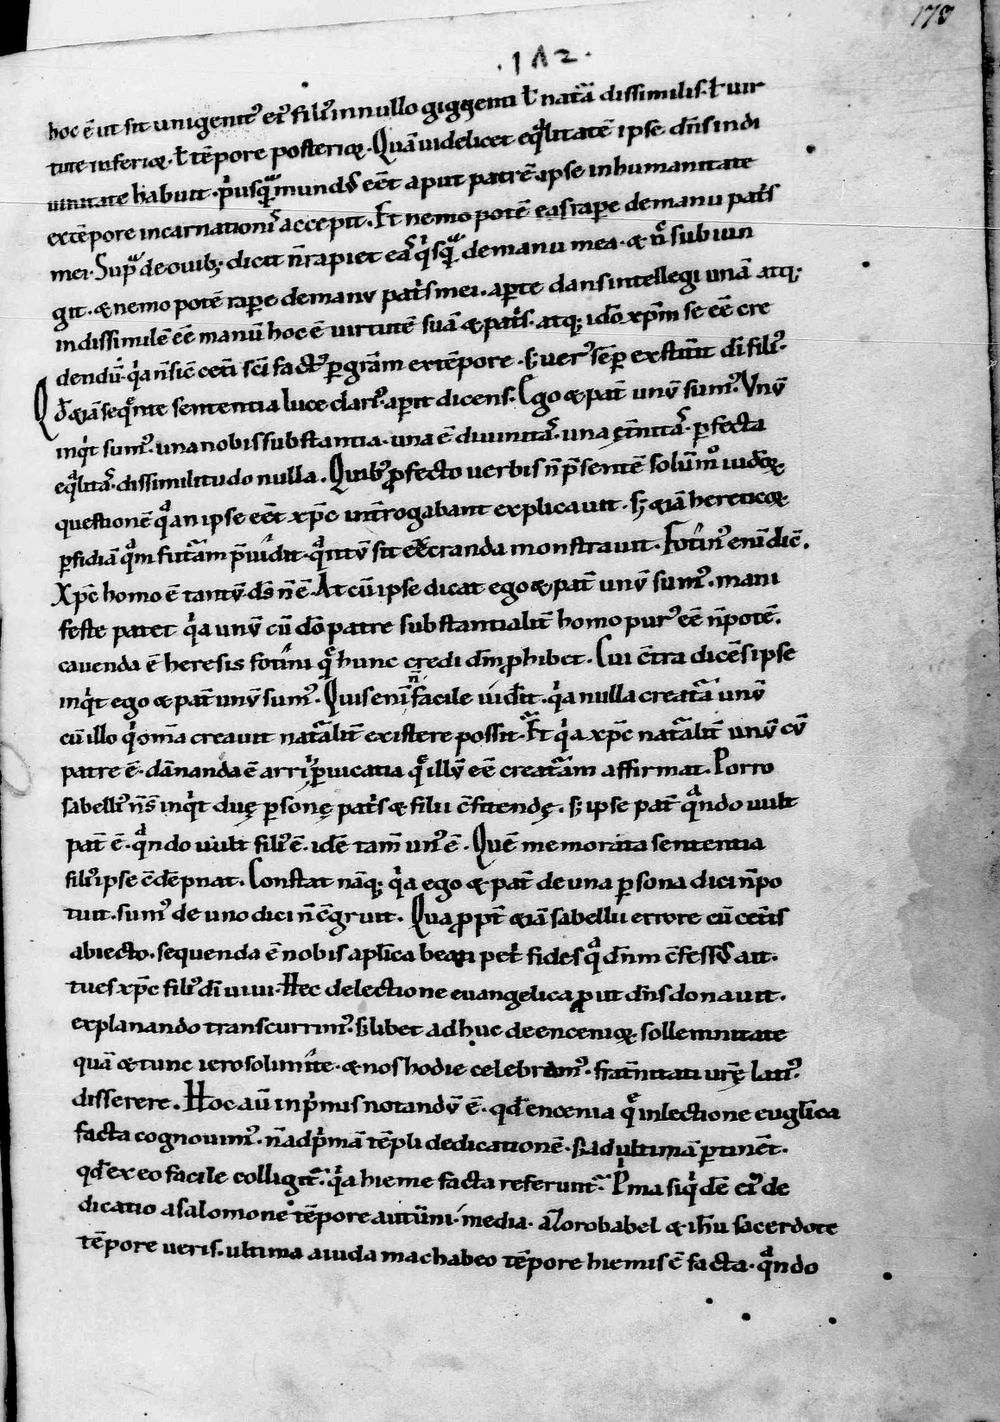 178
.182.
hoc ē ut sit unigenit᾽ ei᾽ fili᾽ in nullo gignenti ł natᵃ̄ dissimilis. ł uir
tute inferioꝝ. ł tēpore posterioꝝ. Quā uidelicet eqᵃlitatē ipse dn̄s in di
uinitate habuit. p͛usqᵃ̄ mund᾽ eēt aput patrē. ipse in humanitate
ex tēpore incarnationis accepit. Et nemo potē eas raꝑe de manu pat͛s
mei. Supᵃ de ouib; dicit n̄ rapiet eas q͛sqᵃ̄ de manu mea. & n̄c subiun
git. & nemo potē raꝑe de manu pat͛s mei. aꝑte dans intellegi unā atq;
indissimilē eē manū hoc ē uirtutē suā & pat͛s. atq; idō xp̄m se eē cre
dendū. q͛a n̄ sic ceti sc̄i fact᾽ ꝑ grām ex tēpore. s; uer᾽ sēꝑ exstitit dī fili᾽.
Qd̄ &iā seqᵉnte sententia luce clari᾽ aꝑit dicens. Ego & pat̄ unū sum᾽. Unū
inq͛t sum᾽. una nobis substantia. una ē diuinitas. una et̄nitas. ꝑfecta
eqᵃlitas. dissimilitudo nulla. Quib᾽ ꝓfecto uerbis n̄ p̄sentē solūm᾽ iudeoꝝ
questionē qᵃ an ipse eēt xp̄c int̄rogabant explicauit. s; &iā hereticoꝝ
ꝑfidiā qᵃm futᵃ̄m p̄uidit. qᵃntū sit execranda monstrauit. Fotin᾽ enī dic̄.
Xp̄c homo ē tantū ds̄ n̄ ē. At cū ipse dicat ego & pat̄ unū sum᾽. mani
feste patet q͛a unū cū dō patre substantialit̄ homo pur᾽ eē n̄ potē.
cauenda ē heresis fotini qᵉ hunc credi dm̄ ꝓhibet. Cui c̄tra dicēs ipse
inq͛t ego & pat̄ unū sum᾽. Quis enī n̄ facile uid̄it. q͛a nulla creatᵃ̄ unū
cū illo q͛ om̄a creauit natᵃ̄lit̄ existere possit. Et q͛a xp̄c natᵃ̄lit̄ unū cū
patre ē. dānanda ē arri᾽ ꝑuicatia qᵉ illū eē creatᵃ̄m affirmat. Porro
sabelli᾽ n̄s inq͛t duę ꝑsonę pat͛s & filii c̄fitendę. s; ipse pat̄ qᵃndo uult
pat̄ ē. qᵃndo uult fili᾽ ē. idē tam̄ un᾽ ē. Quē memorata sententia
fili᾽ ipse c̄dēpnat. Constat nāq; q͛a ego & pat̄ de una ꝑsona dici n̄ po
tuit. sum᾽ de uno dici n̄ c̄gruit. Quaꝓpt̄ &iā sabellii errore cū cet̄is
abiecto. sequenda ē nobis apl̄ica beati pet͛ fides qᵃ dn̄m c̄fess᾽ ait.
tu es xp̄c fili᾽ dī uiui. Hec de lectione euangelica ꝓut dn̄s donauit.
explanando transcurrim᾽. s; libet adhuc de encenioꝝ sollemnitate
quā & tunc ierosolimite. & nos hodie celebram᾽. frat̄nitati ur̄ę lati᾽.
disserere. Hoc aū in p͛mis notandū ē. qd̄ encenia qᵉ in lectione eugl̄ica
facta cognouim᾽. n̄ ad p͛mā tēpli dedicationē. s; ad ultimā ꝑtinēt.
qd̄ ex eo facile colligitᵘ̄. q͛a hieme facta referuntᵘ̄. P͛ma siq͛dē ei᾽ de
dicatio a salomone tēpore autūni. media. a zorobabel & ih̄u sacerdote
tēpore ueris. ultima a iuda machabeo tēpore hiemis ē facta. qᵃndo